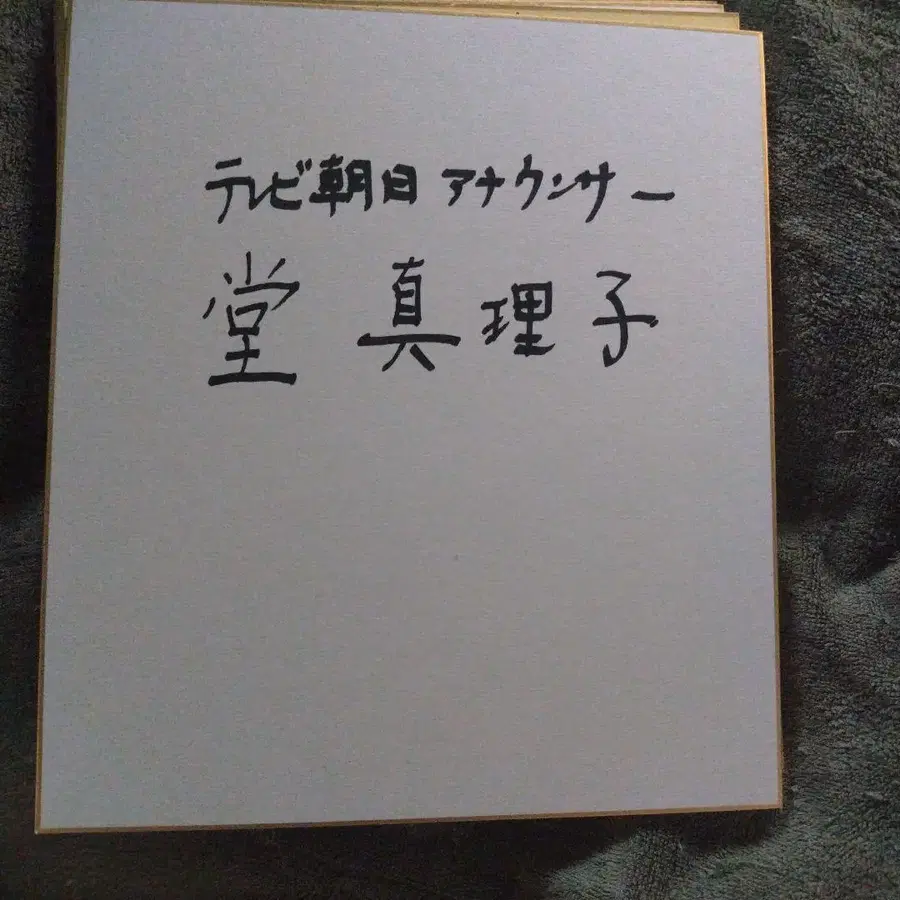 テレビ朝日 アナウンサー
堂 真理子